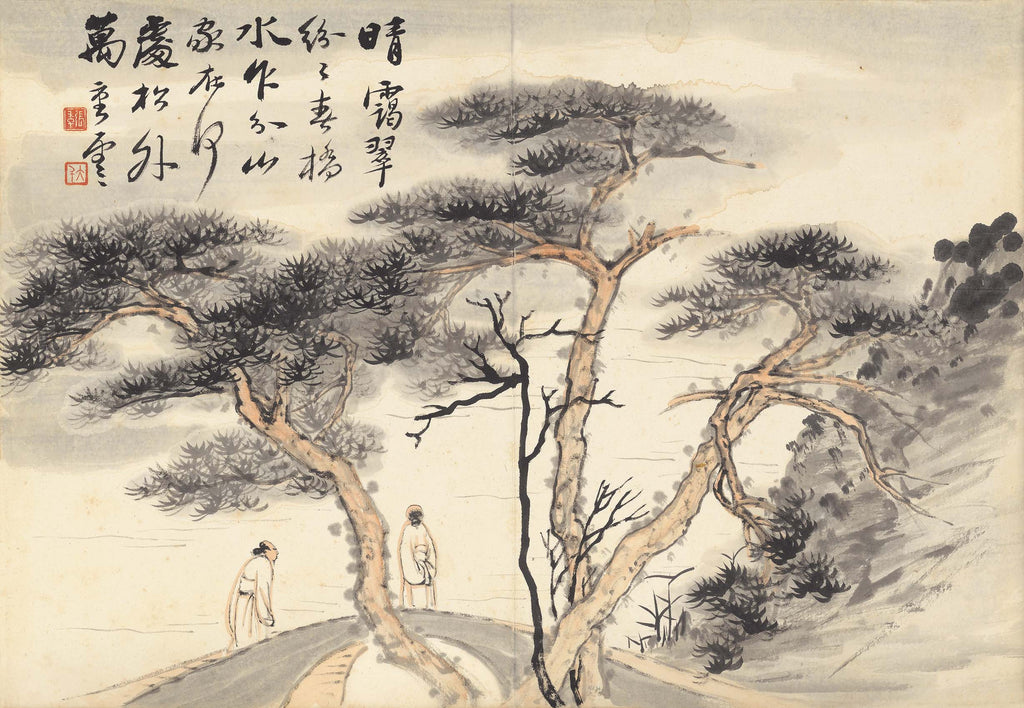 晴靄翠
紛〻春橋
水作分山
家在何
處松外
萬重雲
張季